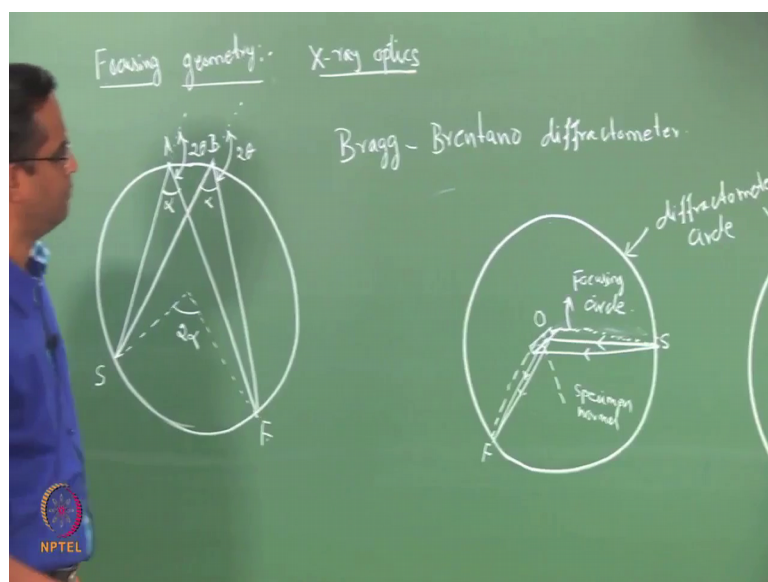 Focusing geometry:- X-ray optics
Bragg - Brentano diffractometer.
A 2θ B 2θ
α α
2α
S
F
diffractometer
circle
Focusing
circle.
O
S
Specimen
normal
F
NPTEL